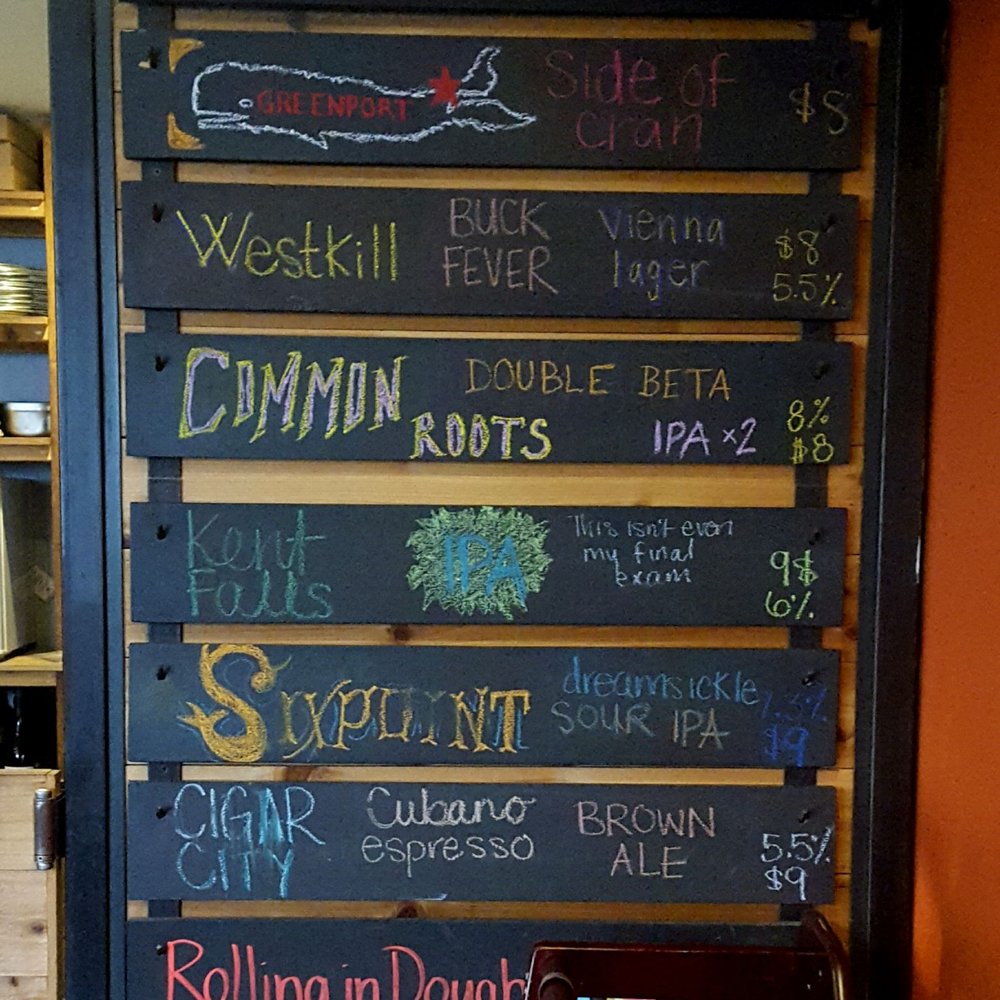 GREENPORT
Side of
cran
$8
Westkill
BUCK
FEVER
Vienna
lager
$8
5.5%
COMMON
ROOTS
DOUBLE BETA
IPA x2
8%
$8
Kent
Falls
IPA
This isn't even
my final
exam
9$
6%
SIXPOINT
dreamsickle
SOUR IPA
$9
CIGAR
CITY
Cubano
espresso
BROWN
ALE
5.5%
$9
Rolling in Dough